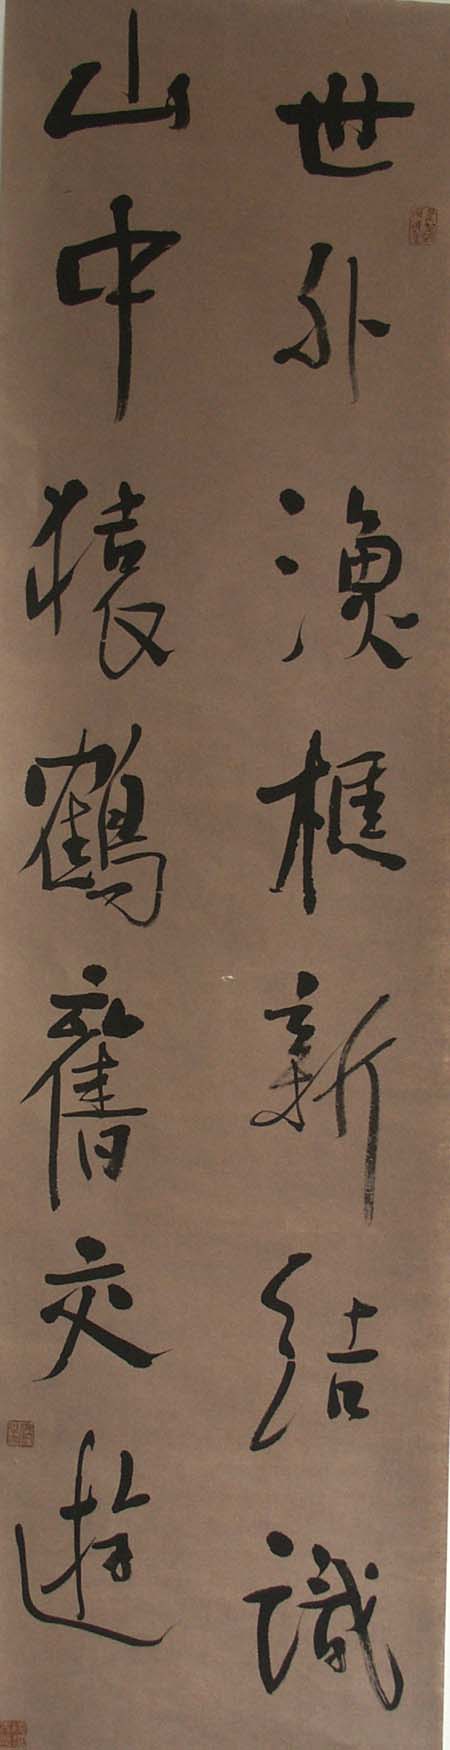 世外漁樵新結識
山中猿鶴舊交遊